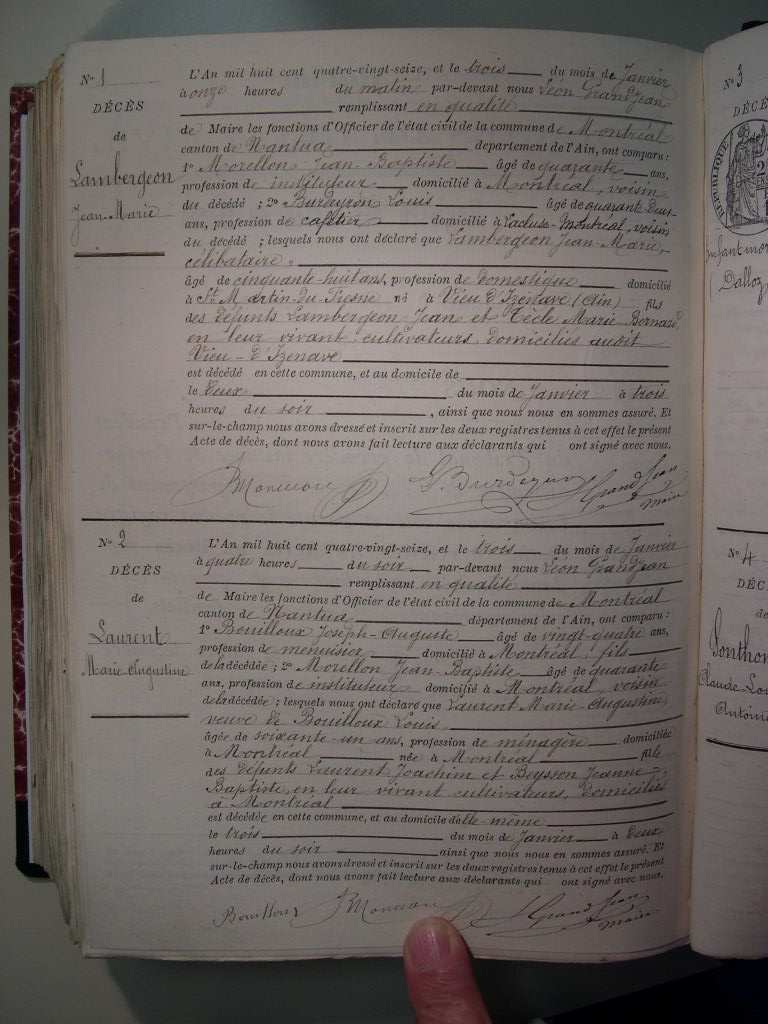 N° 1
DÉCÈS
de
Lambergeon
Jean-Marie
L'An mil huit cent quatre-vingt-seize, et le trois du mois de Janvier
à onze heures du matin par-devant nous Léon Grandjean
remplissant en qualité
de Maire les fonctions d'Officier de l'état civil de la commune de Montréal
canton de Nantua département de l'Ain, ont comparu :
1° Morellon Jean-Baptiste âgé de quarante ans,
profession de instituteur domicilié à Montréal, voisin
du décédé ; 2° Burdeyron Louis âgé de quarante deux
ans, profession de cafetier domicilié à Lacluse-Montréal, voisin
du décédé ; lesquels nous ont déclaré que Lambergeon Jean-Marie,
célibataire.
âgé de cinquante-huit ans, profession de domestique domicilié
à St Martin-du-Fresne né à Vieu d'Izenave (Ain) fils
des défunts Lambergeon Jean et Tècle Marie Bernard,
en leur vivant cultivateurs domiciliés audit
Vieu-d'Izenave
est décédé en cette commune, et au domicile de
le deux du mois de Janvier à trois
heures du soir, ainsi que nous nous en sommes assuré. Et
sur-le-champ nous avons dressé et inscrit sur les deux registres tenus à cet effet le présent
Acte de décès, dont nous avons fait lecture aux déclarants qui ont signé avec nous.
Grand Jean
maire
N° 2
DÉCÈS
de
Laurent
Marie Augustine
L'An mil huit cent quatre-vingt-seize, et le trois du mois de Janvier
à quatre heures du soir par-devant nous Léon Grandjean
remplissant en qualité
de Maire les fonctions d'Officier de l'état civil de la commune de Montréal
canton de Nantua département de l'Ain, ont comparu :
1° Bouilloux Joseph-Auguste âgé de vingt-quatre ans,
profession de menuisier domicilié à Montréal, fils
de la décédée ; 2° Morellon Jean-Baptiste âgé de quarante
ans, profession de instituteur domicilié à Montréal, voisin
de la décédée ; lesquels nous ont déclaré que Laurent Marie-Augustine,
veuve de Bouilloux Louis
âgée de soixante-un ans, profession de ménagère domiciliée
à Montréal née à Montréal fille
des défunts Laurent Joachim et Beysson Jeanne-
Baptiste, en leur vivant cultivateurs, domiciliés
à Montréal
est décédée en cette commune, et au domicile d'elle-même
le trois du mois de Janvier à deux
heures du soir ainsi que nous nous en sommes assuré. Et
sur-le-champ nous avons dressé et inscrit sur les deux registres tenus à cet effet le présent
Acte de décès, dont nous avons fait lecture aux déclarants qui ont signé avec nous.
Bouilloux
Grand Jean
maire
N° 3
DÉCÈ
RÉPUBLIQUE
Dalloz
N° 4
DÉC
de
Ponthon
Claude-Lou
Antoine